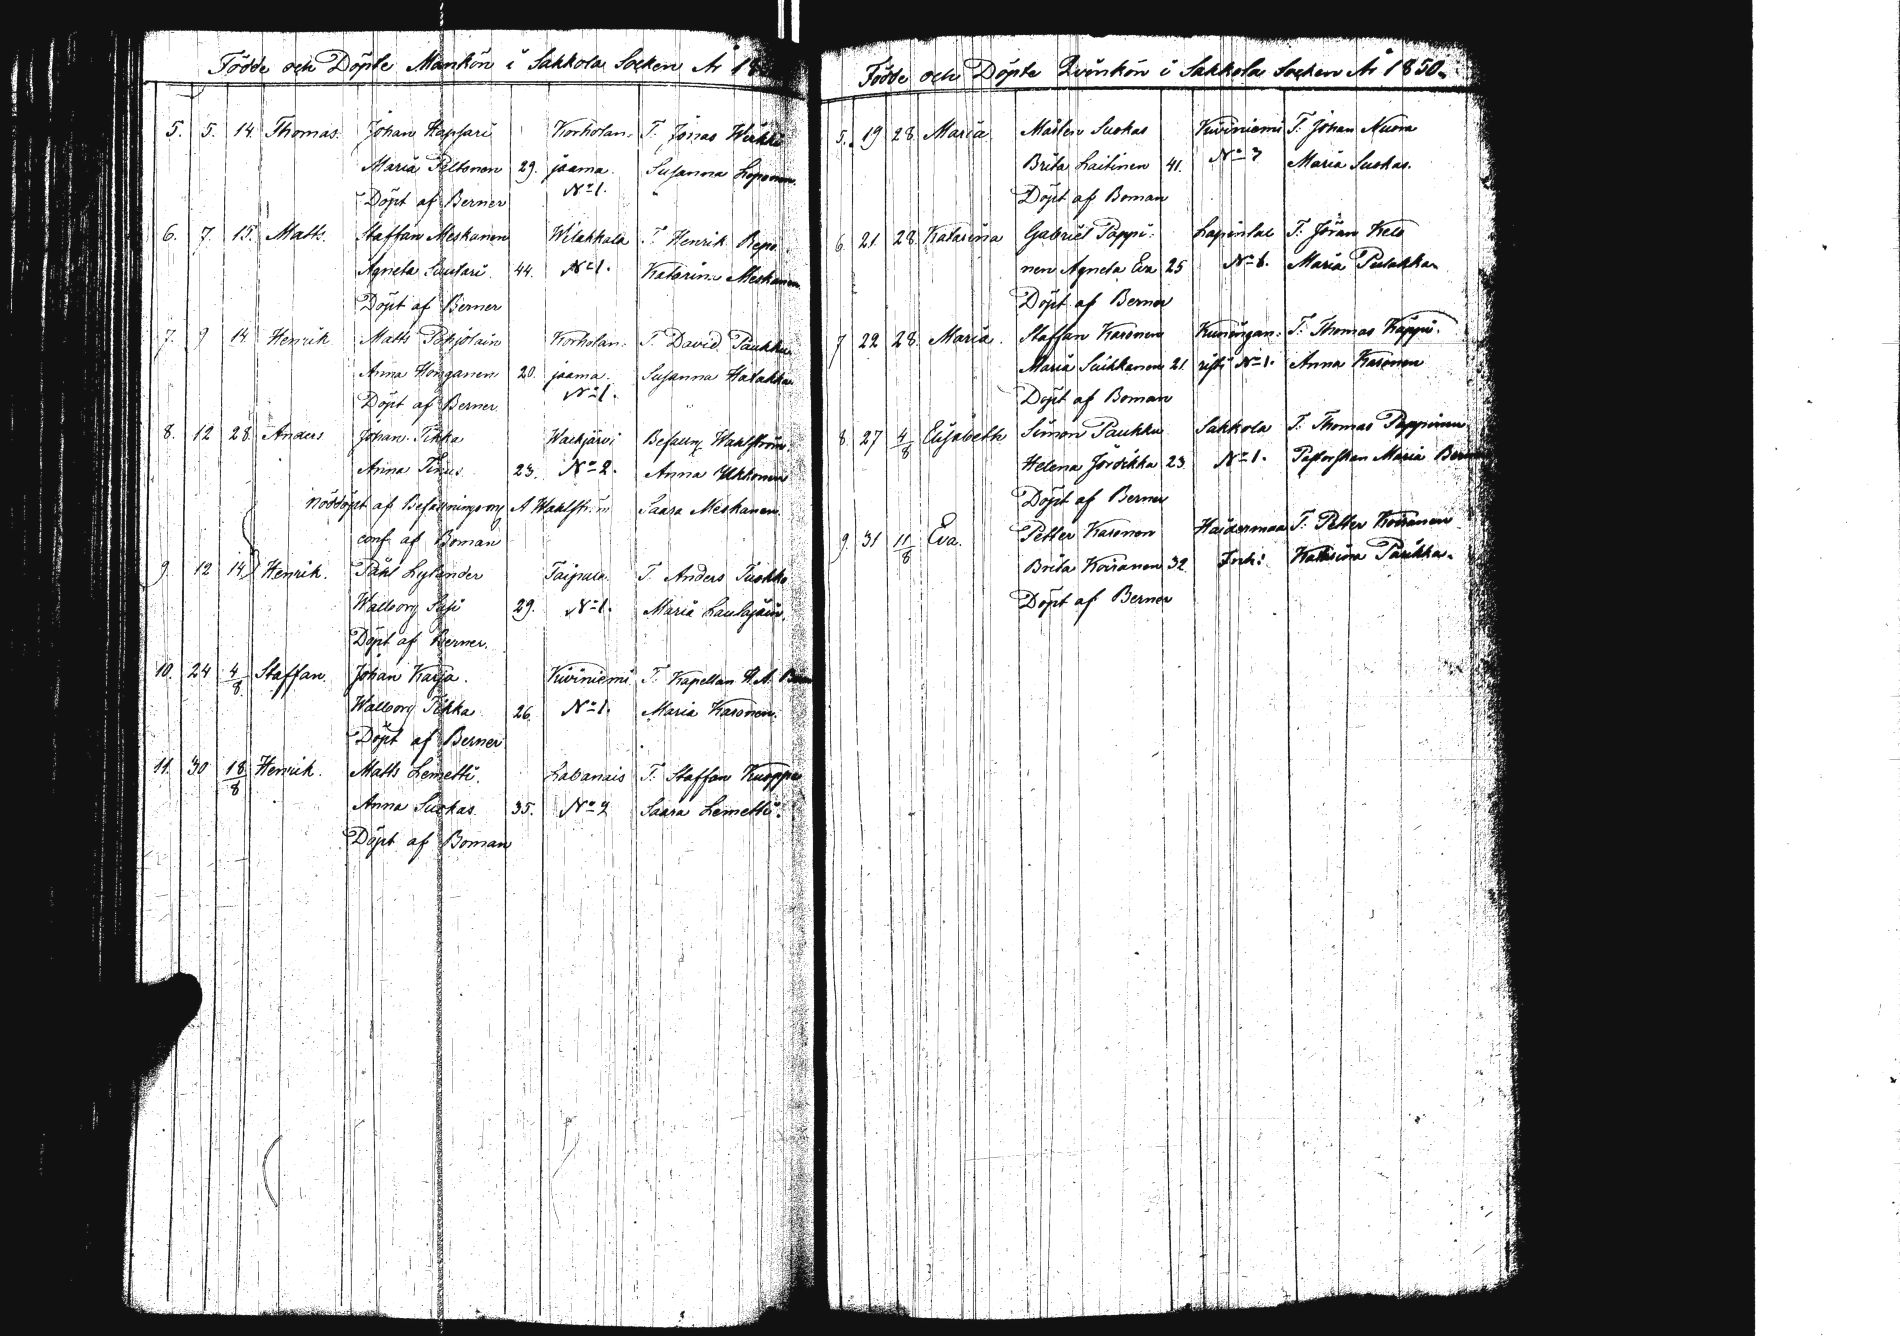 Födde och Döpte Mankön i Sakkola Socken År 18
5. 5. 14 Thomas. Johan Hapsari Korholan. T. Jonas Wirkki
Maria Peltonen 29. jaama. Susanna Loponen.
Döpt af Berner No 1.
6. 7. 15. Matts. Staffan Meskanen Wilakkala T. Henrik Repo
Agneta Suutari. 44. No 1. Katarina Meskanen
Döpt af Berner
7. 9 14 Henrik Matts Pohjolain Korholan. T. David Paukku
Anna Honganen 20. jaama. Susanna Halakka
Döpt af Berner No 1.
8. 12 28. Anders Johan Tikka Waskjärvi Befallnx Wahlström.
Anna 23. No 2. Anna Ukkonen
Nöddöpt af Befallningsm A Wahlström Saara Meskanen
conf. af Boman
9. 12 14 Henrik. Påhl Lylander Taipale. T. Anders Tuokko
Walborg 29. No 1. Maria
Döpt af Berner.
10. 24 4/8 Staffan. Johan Karja. Kiviniemi T. Kapellan
Walborg Tikka 26. No 1. Maria Karonen.
Döpt af Berner
11. 30 18/8 Henrik. Matts Lemetti. Labanais T. Staffan Knoppi
Anna Suokas 35. No 2 Saara Lemetti.
Döpt af Boman
Födde och Döpte Qvinkön i Sakkola Socken År 1850.
5. 19 28 Maria Mårten Suokas Kiviniemi T. Johan Nuora
Brita Laitinen 41. No 7 Maria Suokas.
Döpt af Boman
6 21. 28. Katarina Gabriel Pappi- Lapinlax T. Jöran Kelo
nen Agneta Eva 25 No 6. Maria Pulakka
Döpt af Berner
7 22 28. Maria. Staffan Karonen Kuningan- T. Thomas Käppi.
Maria Suikkanen 21 risti No 1. Anna Karonen
Döpt af Boman
8. 27 4/8 Elisabeth Simon Paukku Sakkola T. Thomas Pappinen
Helena Jördikka 23 No 1. Pastorskan Maria
Döpt af Berner
9. 31 11/8 Eva. Petter Karonen Haidermaa T. Petter Koiranen
Brita Koiranen 32 Frih: Katarina Paukku.
Döpt af Berner